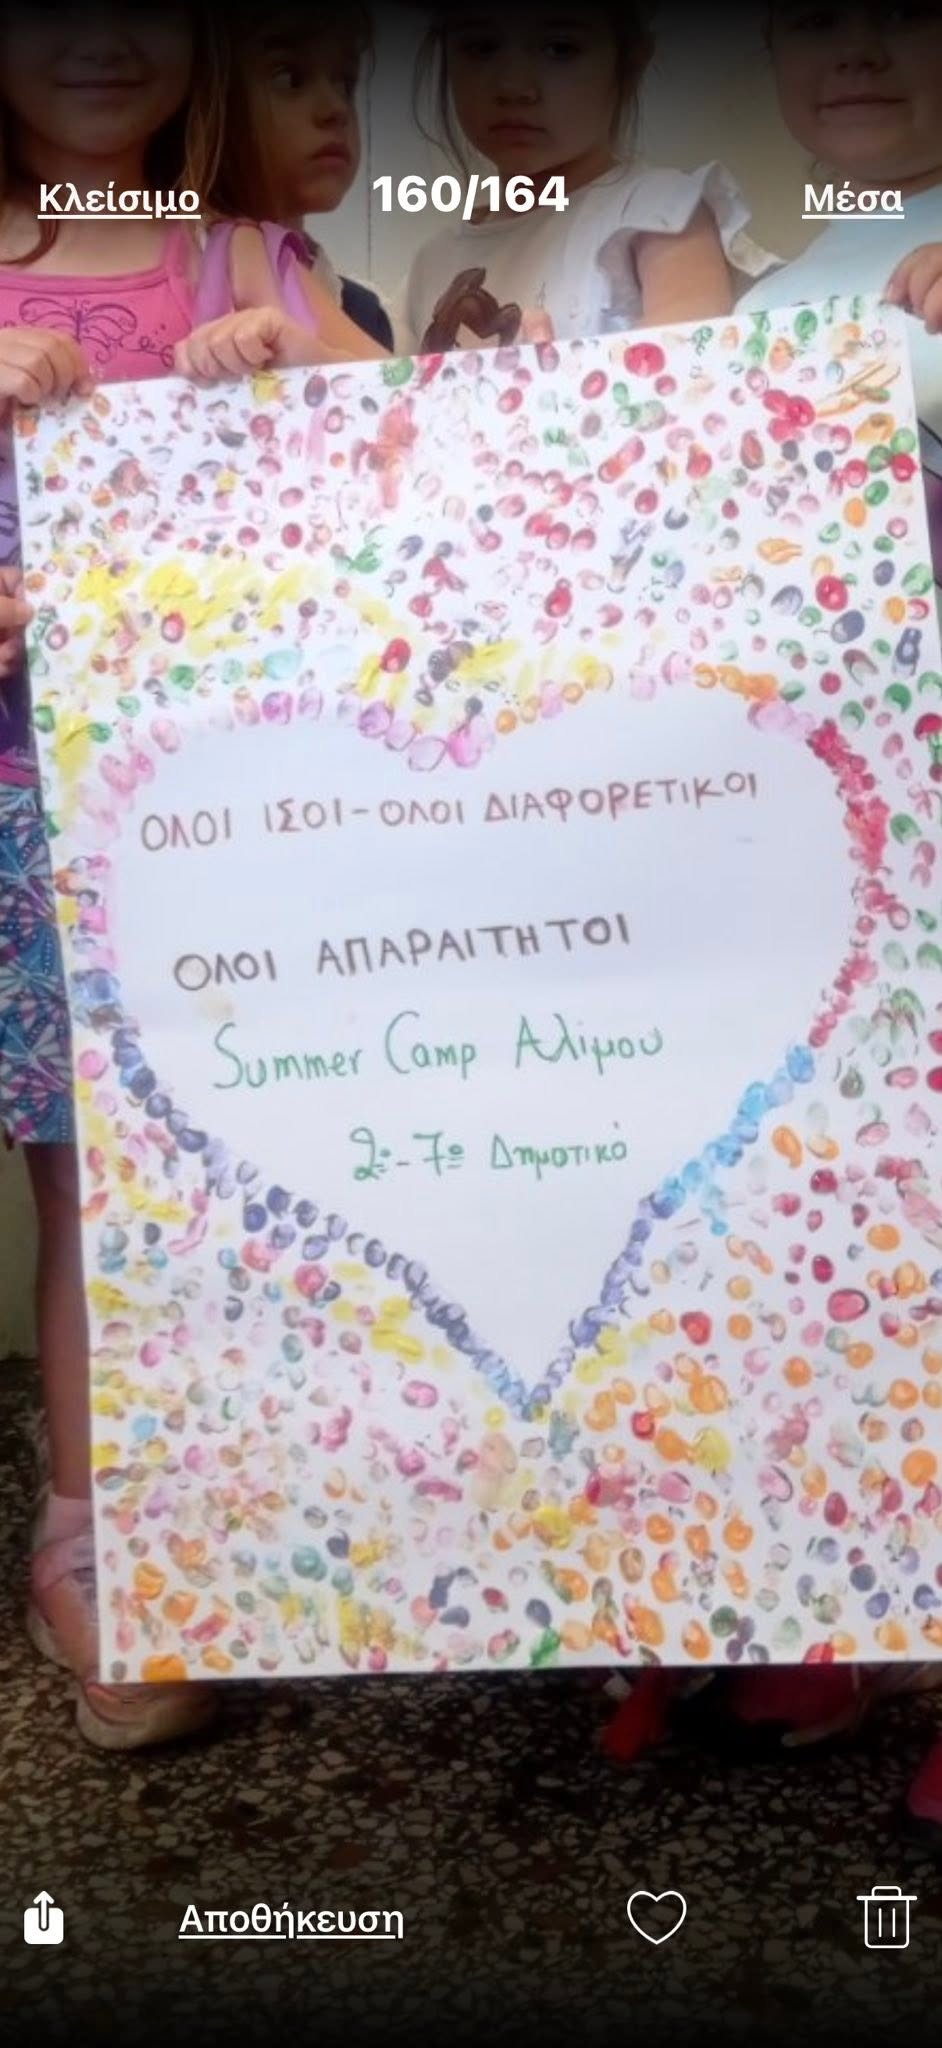 Κλείσιμο 160/164 Μέσα
ΟΛΟΙ ΙΣΟΙ-ΟΛΟΙ ΔΙΑΦΟΡΕΤΙΚΟΙ
ΟΛΟΙ ΑΠΑΡΑΙΤΗΤΟΙ
Summer Camp Αλίμου
2º-7º Δημοτικό
Αποθήκευση